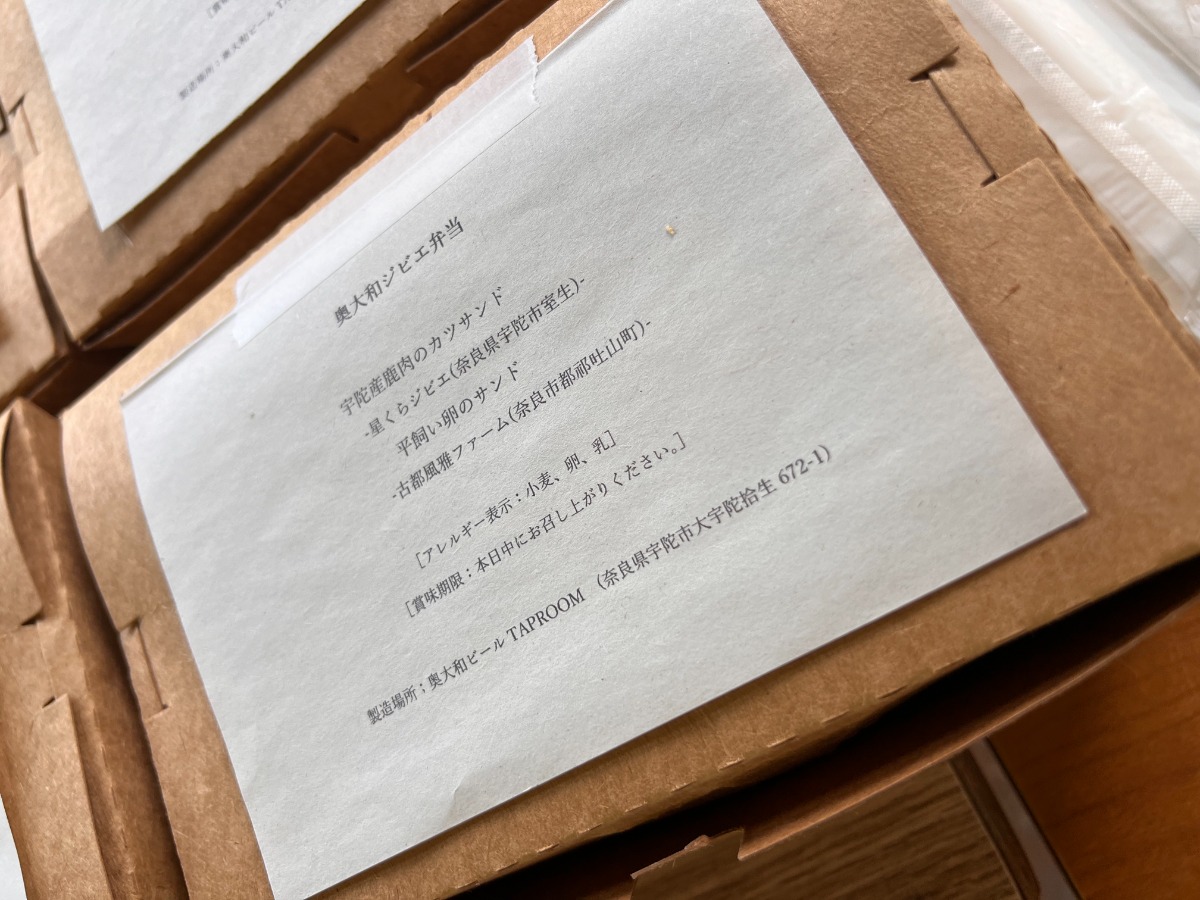 製造場所；奥大和ビール
奥大和ジビエ弁当
宇陀産鹿肉のカツサンド
-星くらジビエ(奈良県宇陀市室生)-
平飼い卵のサンド
-古都風雅ファーム(奈良市都祁吐山町)-
［アレルギー表示：小麦、卵、乳］
［賞味期限：本日中にお召し上がりください。］
製造場所；奥大和ビール TAPROOM （奈良県宇陀市大宇陀拾生 672-1）